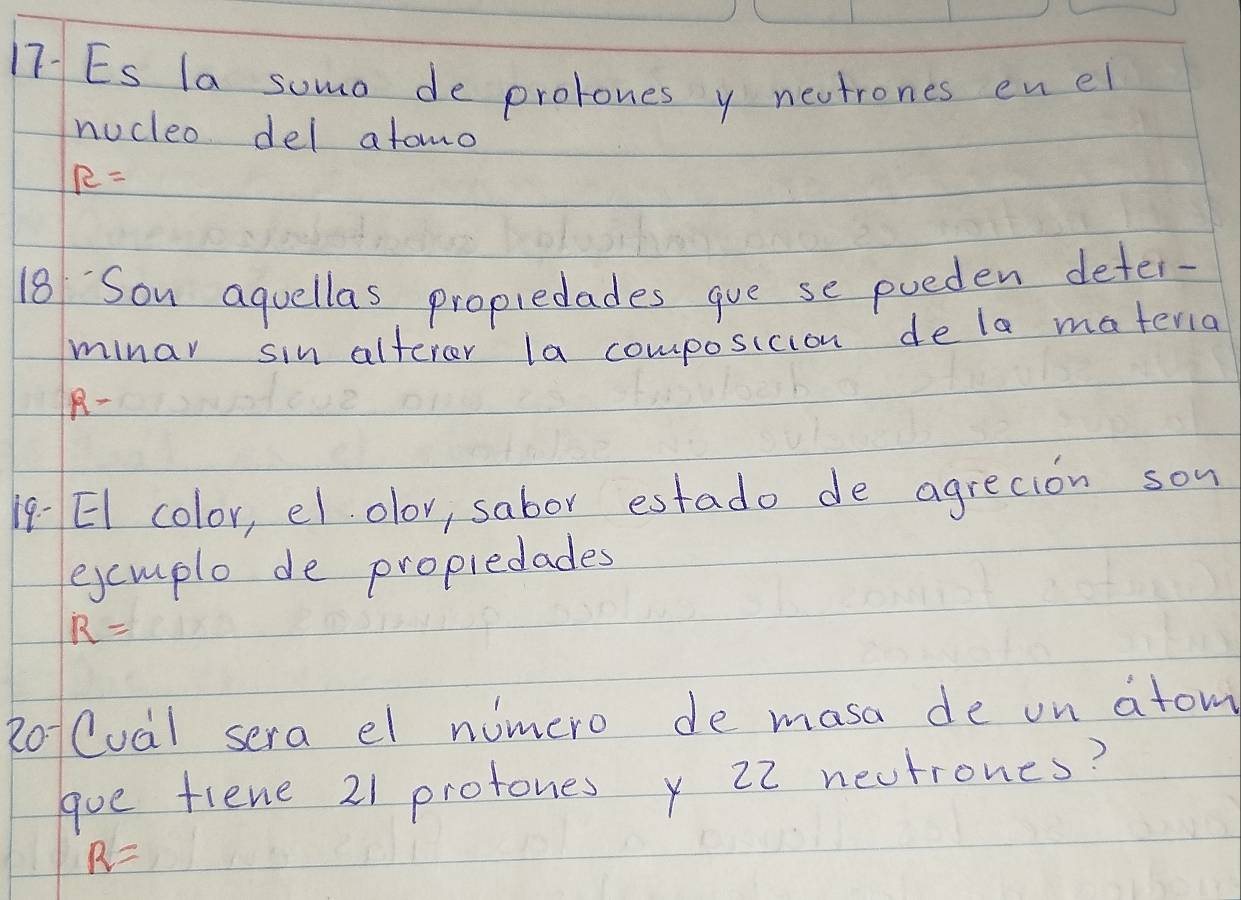 17- Es la suma de protones y neutrones en el
nucleo del atomo
R=
18.- Son aquellas propiedades que se pueden deter-
minar sin alterar la composicion de la materia
R-
19- El color, el olor, sabor estado de agreción son
ejemplo de propiedades
R=
20- Cuál sera el número de masa de un átom
que tiene 21 protones y 22 neutrones?
R=